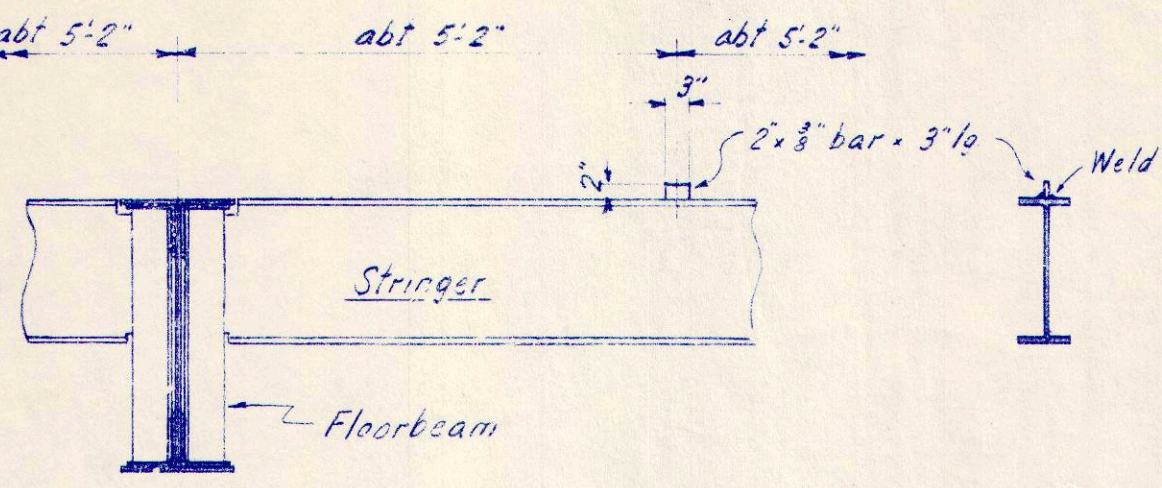 abt 5'-2"
abt 5'-2"
abt 5'-2"
3"
2" x 3/8" bar x 3" lg
Weld
2"
Stringer
Floorbeam